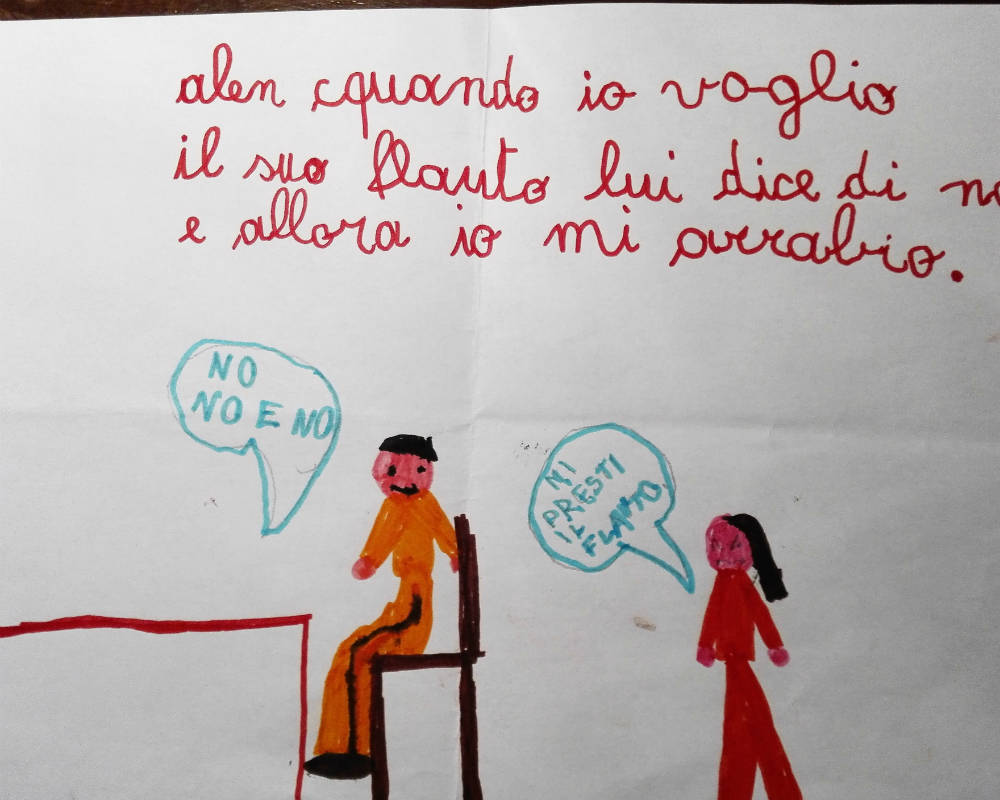 alen cquando io voglio
il suo flauto lui dice di no
e allora io mi arrabio.
NO
NO E NO
MI
PRESTI
IL
FLAUTO